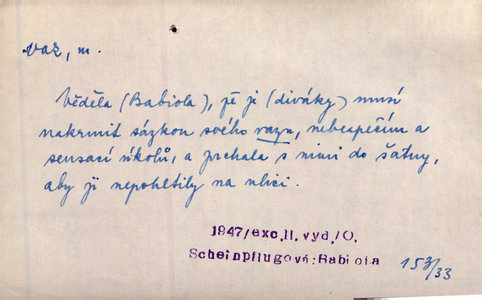 vaz, m.
Věděla (Babiola), že je (diváky) musí
nakrmit sázkou svého vazu, nebezpečím a
sensací úkolů, a prchala s nimi do šatny,
aby ji nepohltily na ulici.
1947/exc.II.vyd./O.
Scheinpflugová:Babiola
153/33